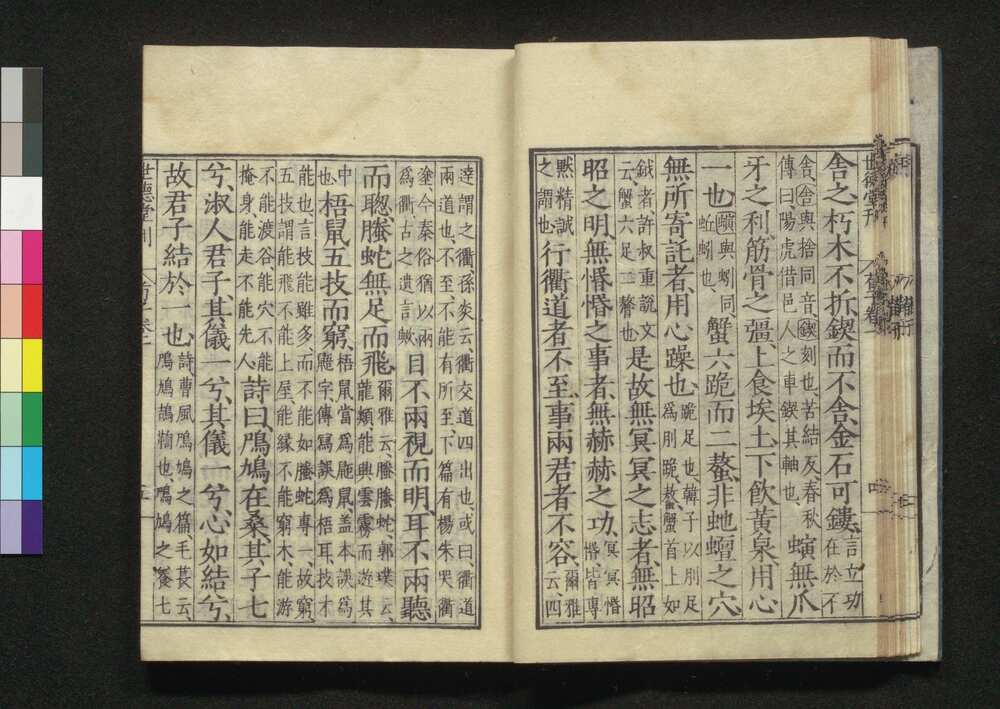 世德堂刊
荀子卷一
舎之朽木不折鍥而不舎金石可鏤言立功
在於不
舎舎與捨同音鍥刻也苦結反春秋
傳曰陽虎借邑人之車鍥其軸也螾無爪
牙之利筋骨之彊上食埃土下飲黃泉用心
一也螾與蚓同
蚯蚓也蟹六跪而二螯非虵蟺之穴
無所寄託者用心躁也跪足也韓子以刖足
為刖跪螯蟹首上如
鉞者許叔重說文
云蟹六足二螯也是故無冥冥之志者無昭
昭之明無惛惛之事者無赫赫之功冥冥惛
惛皆專
黙精誠
之謂也行衢道者不至事兩君者不容爾雅
云四
逹謂之衢孫炎云衢交道四出也或曰衢道
兩道也不至不能有所至下篇有楊朱哭衢
塗今秦俗猶以兩
為衢古之遺言歟目不兩視而明耳不兩聽
而聰螣蛇無足而飛爾雅云螣螣蛇郭璞云
龍類能興雲霧而遊其
中
也梧鼠五技而窮梧鼠當為鼫鼠盖本誤為
鼫字傳寫誤為梧耳技才
能也言技能雖多而不能如螣蛇專一故窮
五技謂能飛不能上屋能緣不能窮木能游
不能渡谷能穴不能
掩身能走不能先人詩曰鳲鳩在桑其子七
兮淑人君子其儀一兮其儀一兮心如結兮
故君子結於一也詩曹風鳲鳩之篇毛萇云
鳲鳩鴶鞠也鳲鳩之養七
世德堂刊